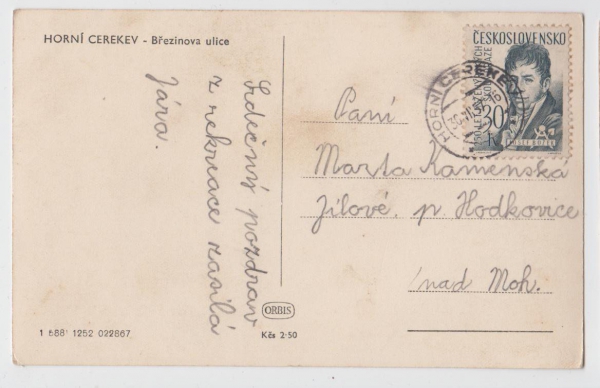 HORNÍ CEREKEV - Březinova ulice
Srdečný pozdrav
z rekreace zasílá
Jára.
ČESKOSLOVENSKO
30
JOSEF BOŽEK
HORNÍ CEREKEV
Paní
Marta Kamenská
Jílové. p. Hodkovice
nad Moh.
ORBIS
Kčs 2·50
1 588 1252 022867